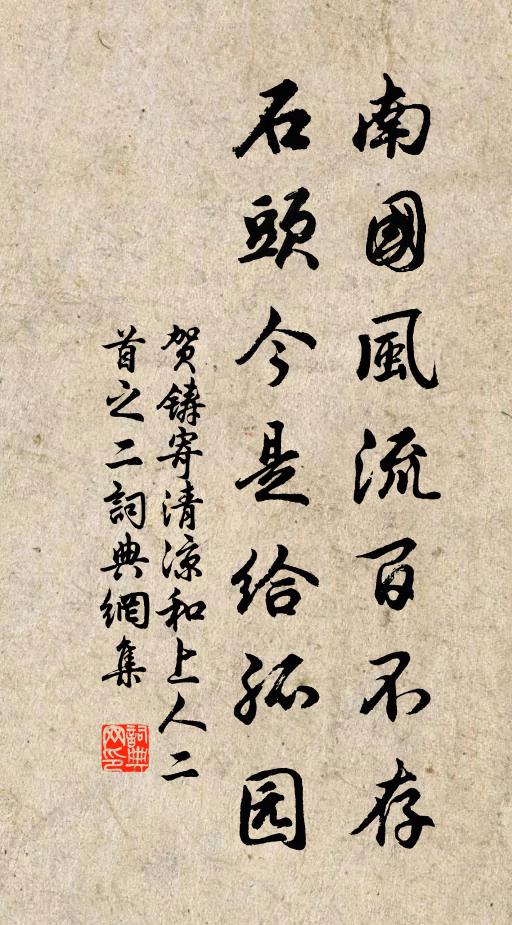 南國風流百不存
石頭今是給孤园
贺鑄寄清涼和上人二
首之二詞典網集
詞典网印